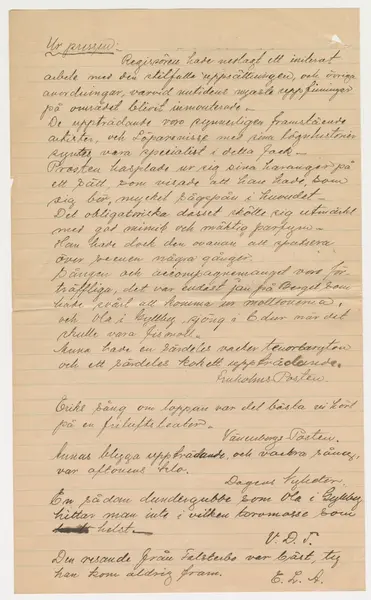 Ur pressen.
Regissören hade nedlagt ett initerat
arbete med den stilfulla uppsättningen, och övriga
anordningar, varvid nutidens nyaste uppfinningar
på området blivit inmonterade.-
De uppträdande voro synnerligen framstående
artister, och Löparnisse med sina högnhistorier
syntes vara specialist i detta fack.-
Prosten hasplade ur sig sina haranger på
ett sätt, som visade att han hade, som
sig bör, mycket sågspån i huvudet.-
Det obligatoriska dasset skötte sig utmärkt
med god minut och mäktig parfym.-
Han hade dock den ovanan att spatsera
över scenen några gånger.
Sången och accompagnemanget voro för-
träffliga, det var endast Jan på Berget som
hade svårt att komma ur molltonerna,
och Ola i Gyllby sjöng i Edur när det
skulle vara fismoll.-
Anna hade en särdeles vacker tenorbaryton
och ett särdeles kokett uppträdande.
Enkolms Posten.
Eriks sång om loppan var det bästa vi hört
på en friluftsteater.-
Vänersborgs Posten.
Annas blyga uppträdande, och vackra sång,
var aftonens clo.
Dagens Nyheter.
En sådan dundergubbe som Ola i Gyllby
hittar man inte i vilken torvmosse som
helst.-
V.D.T.
Den resande från Falsterbo var bäst, ty
han kom aldrig fram.
E.L.A.